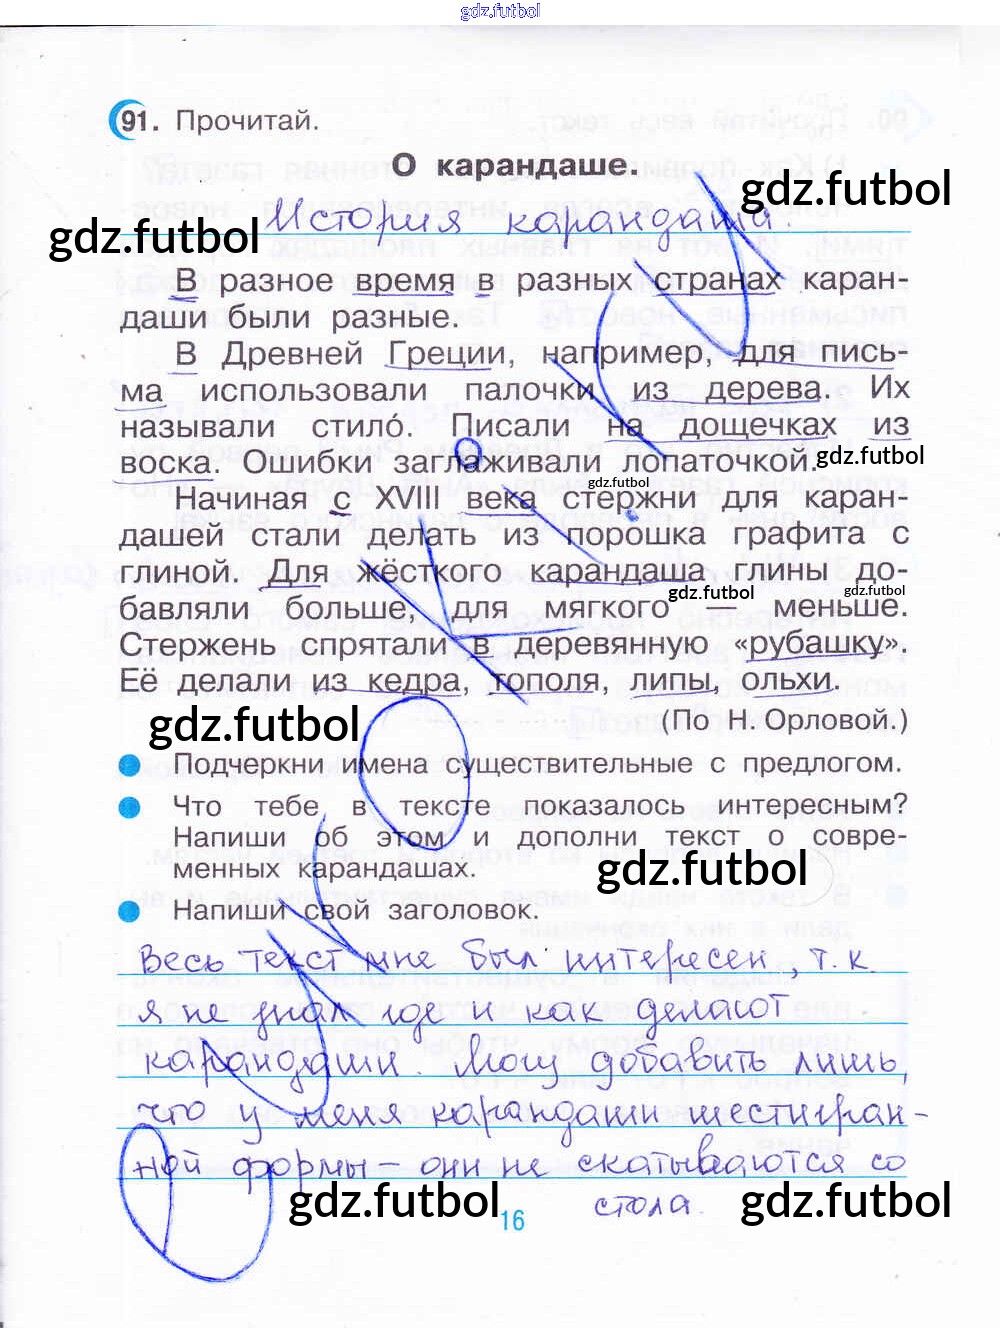 gdz.futbol
91. Прочитай.
О карандаше
gdz.futbol
История карандаша.
gdz.futbol
В разное время в разных странах каран-
даши были разные.
В Древней Греции, например, для пись-
ма использовали палочки из дерева. Их
называли стило. Писали на дощечках из
воска. Ошибки заглаживали лопаточкой.
gdz.futbol
gdz.futbol
Начиная с XVIII века стержни для каран-
дашей стали делать из порошка графита с
глиной. Для жёсткого карандаша глины до-
gdz.futbol
gdz.futbol
бавляли больше, для мягкого — меньше.
Стержень спрятали в деревянную «рубашку».
Её делали из кедра, тополя, липы, ольхи.
gdz.futbol
(По Н. Орловой.)
Подчеркни имена существительные с предлогом.
Что тебе в тексте показалось интересным?
Напиши об этом и дополни текст о совре-
менных карандашах.
gdz.futbol
Напиши свой заголовок.
Весь текст мне был интересен, т.к.
я не знал где и как делают
карандаши. Могу добавить лишь,
что у меня карандаши шестигран-
ной формы они не скатываются со
стола.
gdz.futbol
16
gdz.futbol